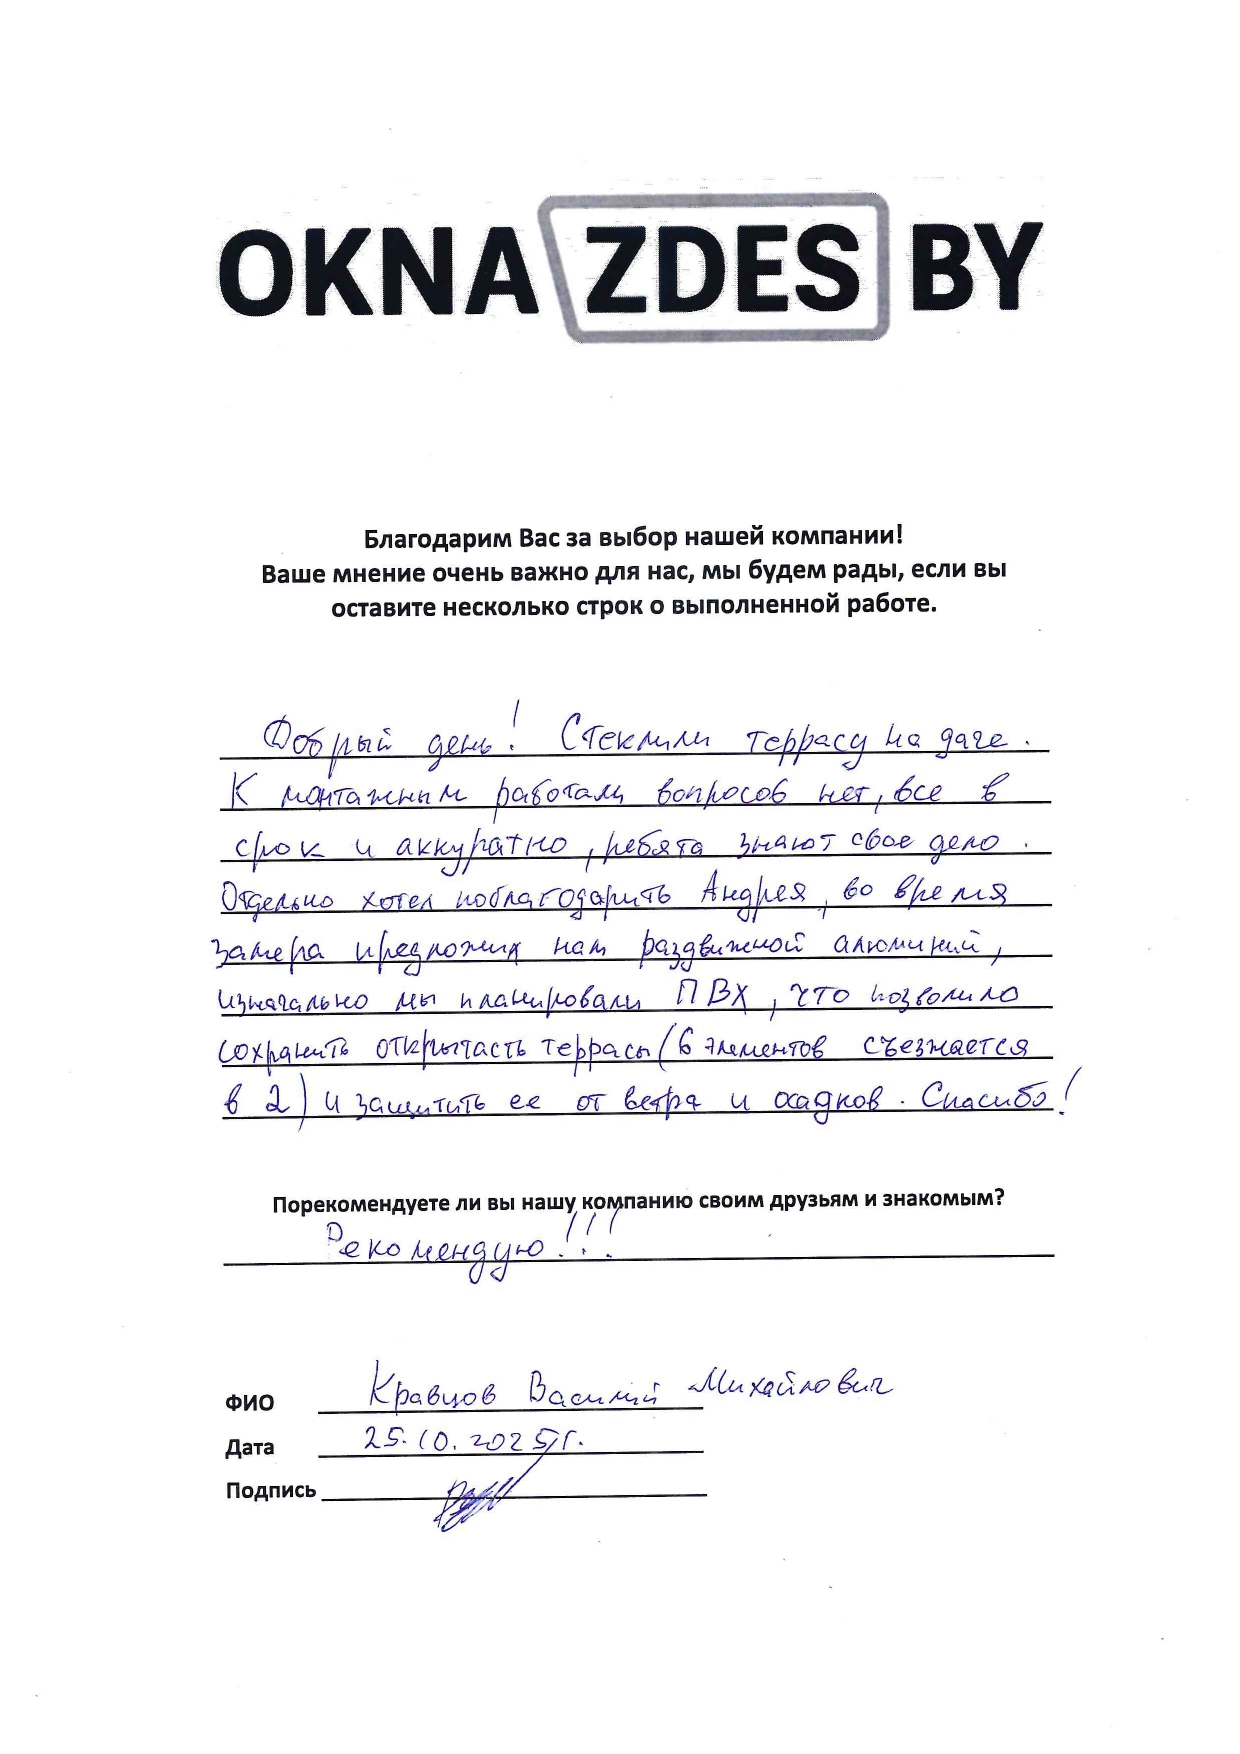 OKNA ZDES BY
Благодарим Вас за выбор нашей компании!
Ваше мнение очень важно для нас, мы будем рады, если вы
оставите несколько строк о выполненной работе.
Добрый день! Стеклили террасу на даче.
К монтажным работам вопросов нет, все в
срок и аккуратно, ребята знают свое дело.
Отдельно хотел поблагодарить Андрея, во время
замера предложил нам раздвижной алюминий,
изначально мы планировали ПВХ, что позволило
сохранить открытасть террасы (6 элементов съезжается
в 2) и защитить ее от ветра и осадков. Спасибо!
Порекомендуете ли вы нашу компанию своим друзьям и знакомым?
Рекомендую!!!
ФИО Кравцов Василий Михайлович
Дата 25.10.2025г.
Подпись